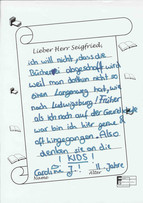 Lieber Herr Seigfried,
ich will nicht, dass die
Bücherei abgeschafft wird
weil man dathen nicht so
einen Langenweg hat, wie
nach Ludwigsburg! Früher
als ich noch auf der Grundschule
war bin ich sehr gerne
oft hingegangen. Also
denken sie an die
! KIDS!
Carolina J! 11. Jahre
Name Alter